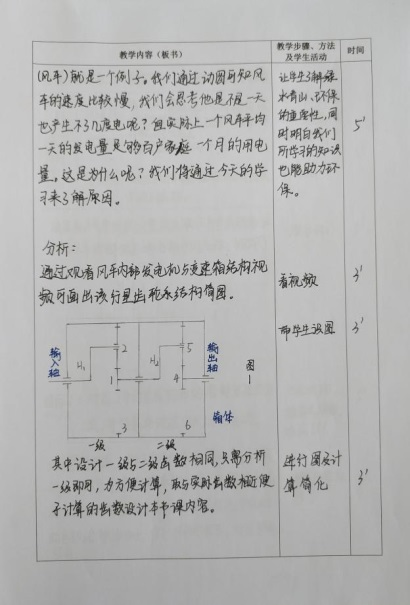 教学内容（板书）
教学步骤、方法
及学生活动
时间
(风车)就是一个例子。我们通过动图可知风
车的速度比较慢，我们会思考他是不是一天
也产生不了几度电呢？但实际上一个风车平均
一天的发电量是够百户家庭一个月的用电
量，这是为什么呢？我们将通过今天的学
习来了解原因。
让学生了解绿
水青山、环保
的重要性，同
时明白我们
所学习的知识
也能助力环
保。
5'
分析：
通过观看风车内部发电机与变速箱结构视
频可画出该行星齿轮系结构简图。
看视频
3'
带学生设图
3'
输入轴
H₁
2
1
3
一级
H₂
5
4
6
二级
输出轴
箱体
图
1
其中设计一级与二级齿数相同，只需分析
一级即可，为方便计算，取与实际齿数相近便
于计算的齿数设计本节课内容。
进行图及计
算简化
3'